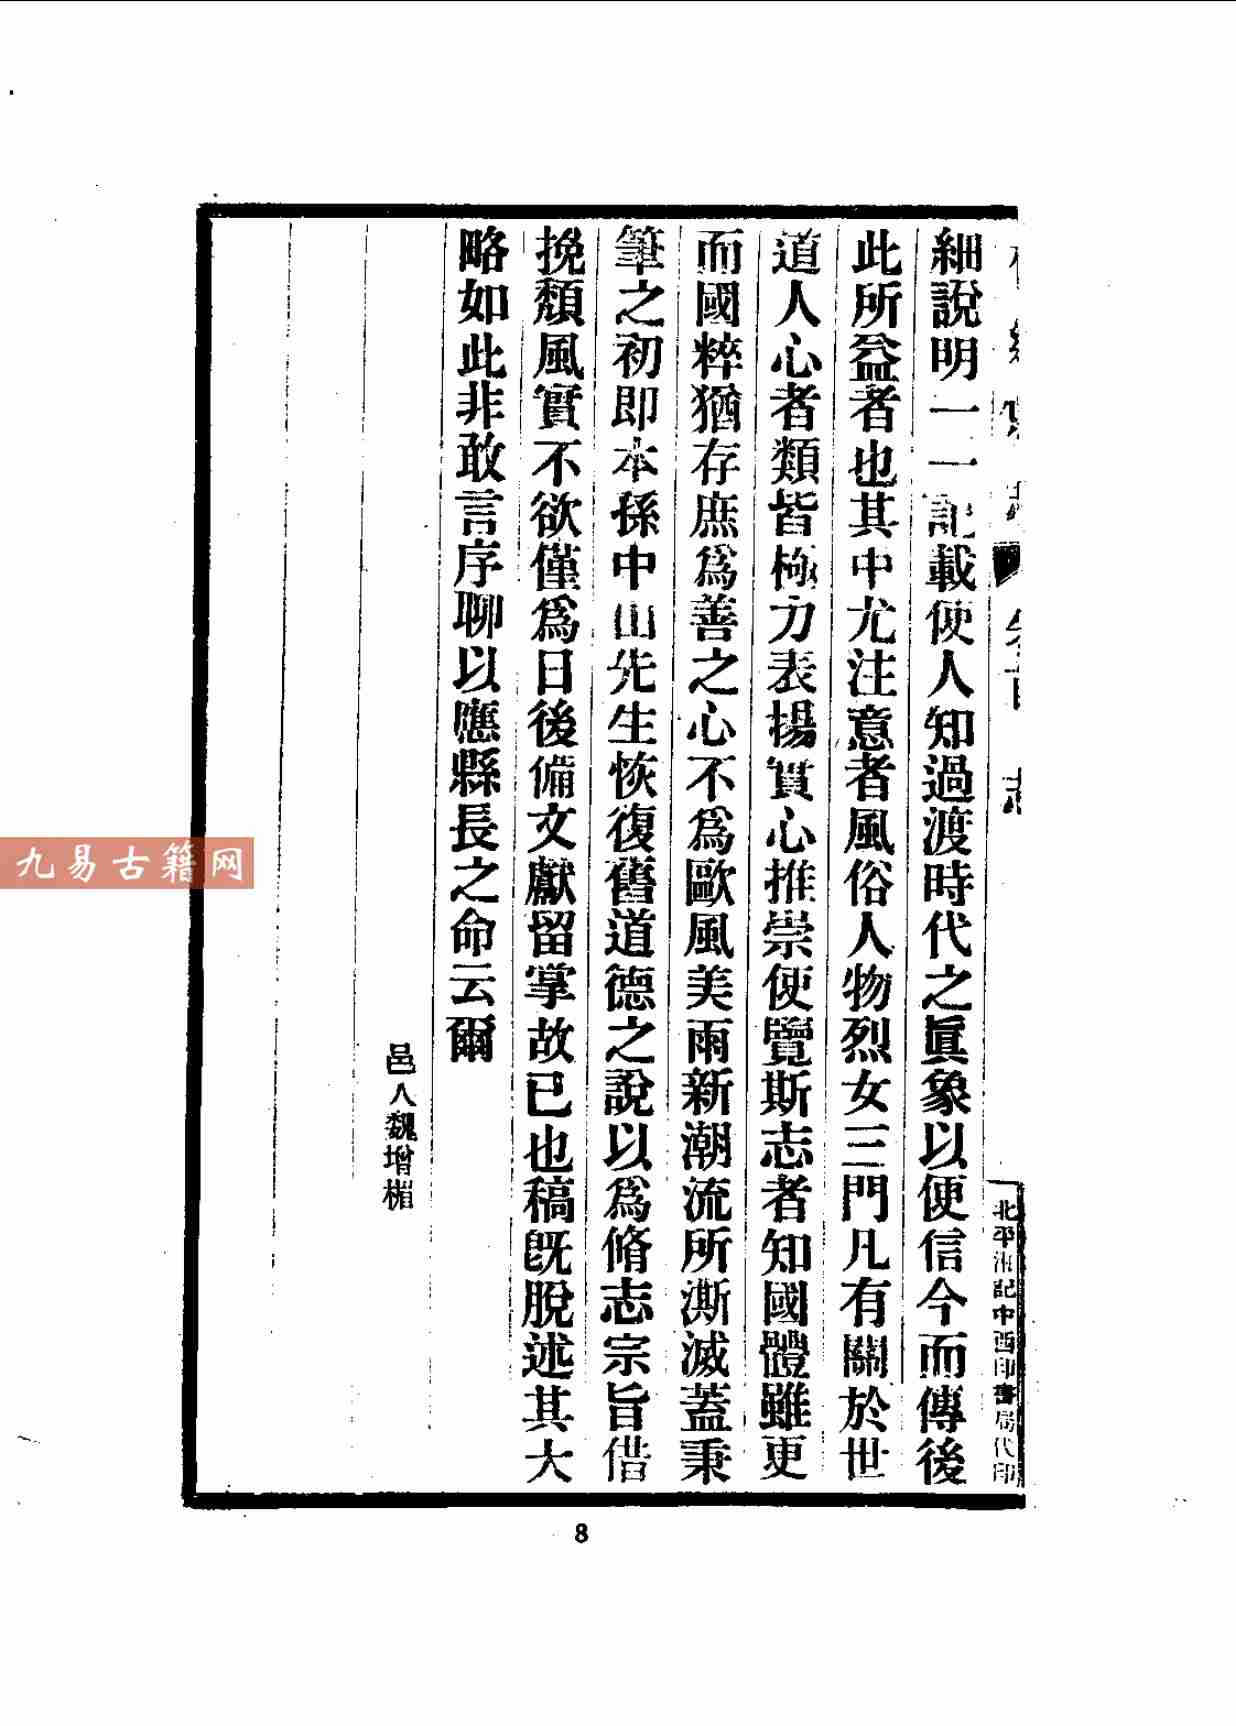 細說明一一記載使人知過渡時代之眞象以便信今而傳後
此所益者也其中尤注意者風俗人物烈女三門凡有關於世
道人心者類皆極力表揚實心推崇使覽斯志者知國體雖更
而國粹猶存庶爲善之心不爲歐風美雨新潮流所澌滅蓋秉
筆之初即本孫中山先生恢復舊道德之說以爲脩志宗旨借
挽頹風實不欲僅爲日後備文獻留掌故已也稿既脫述其大
略如此非敢言序聊以應縣長之命云爾
邑人魏增楣
北平湘記中西印書局代印
九易古籍网
8